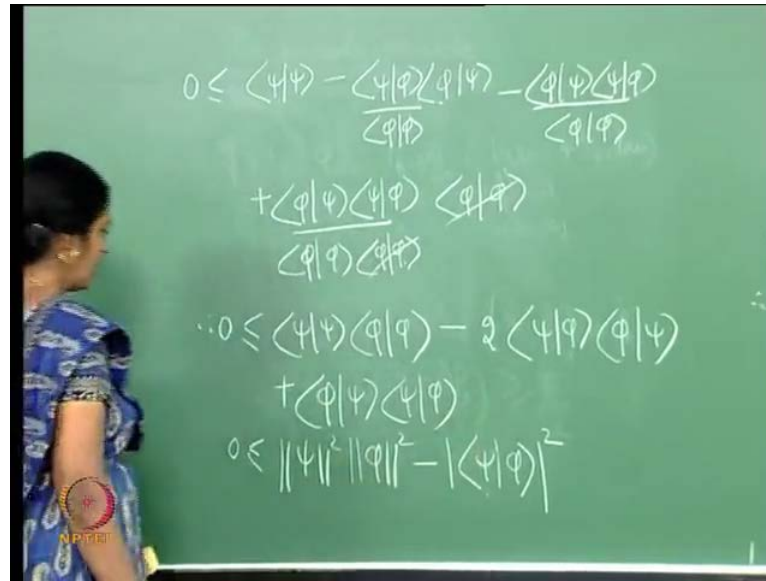 0 ≤ ⟨ψ|ψ⟩ − ⟨ψ|φ⟩⟨φ|ψ⟩ / ⟨φ|φ⟩ − ⟨φ|ψ⟩⟨ψ|φ⟩ / ⟨φ|φ⟩
+ ⟨φ|ψ⟩⟨ψ|φ⟩ / ⟨φ|φ⟩⟨φ|φ⟩ ⟨φ|φ⟩
∴ 0 ≤ ⟨ψ|ψ⟩⟨φ|φ⟩ − 2⟨ψ|φ⟩⟨φ|ψ⟩
+ ⟨φ|ψ⟩⟨ψ|φ⟩
0 ≤ ||ψ||² ||φ||² − |⟨ψ|φ⟩|²
NPTEL